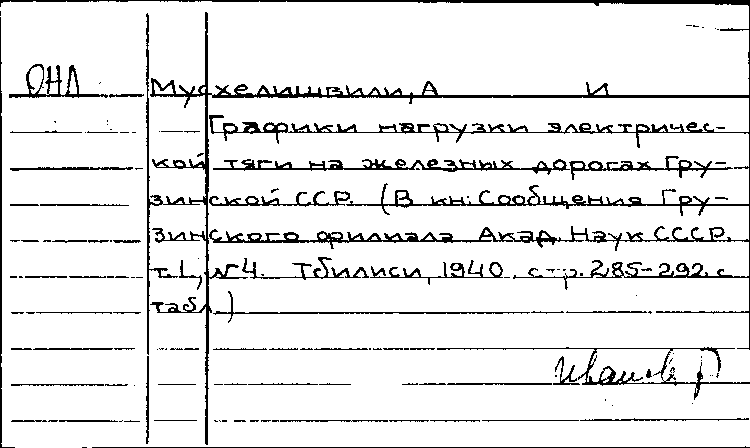 ОНЛ Мусхелишвили, А И
Графики нагрузки электричес-
кой тяги на железных дорогах Гру-
зинской ССР. (В кн: Сообщения Гру-
зинского филиала Акад. Наук СССР.
т.1, №4. Тбилиси, 1940. стр. 285-292. с
табл.)
Иванов